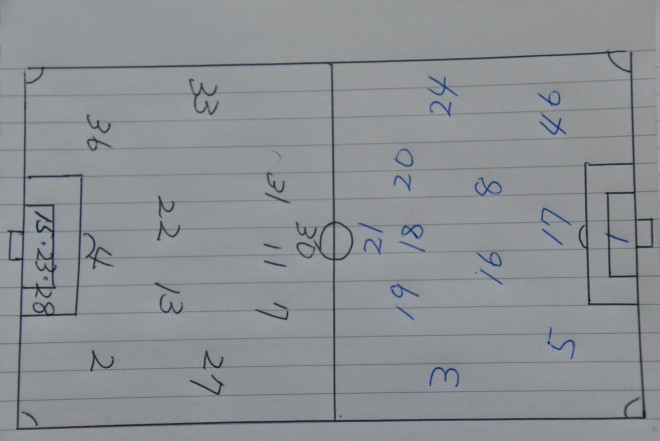 33
36
31
22
30
15.23.28
4
11
13
7
2
27
24
46
20
8
21
18
17
1
16
19
5
3